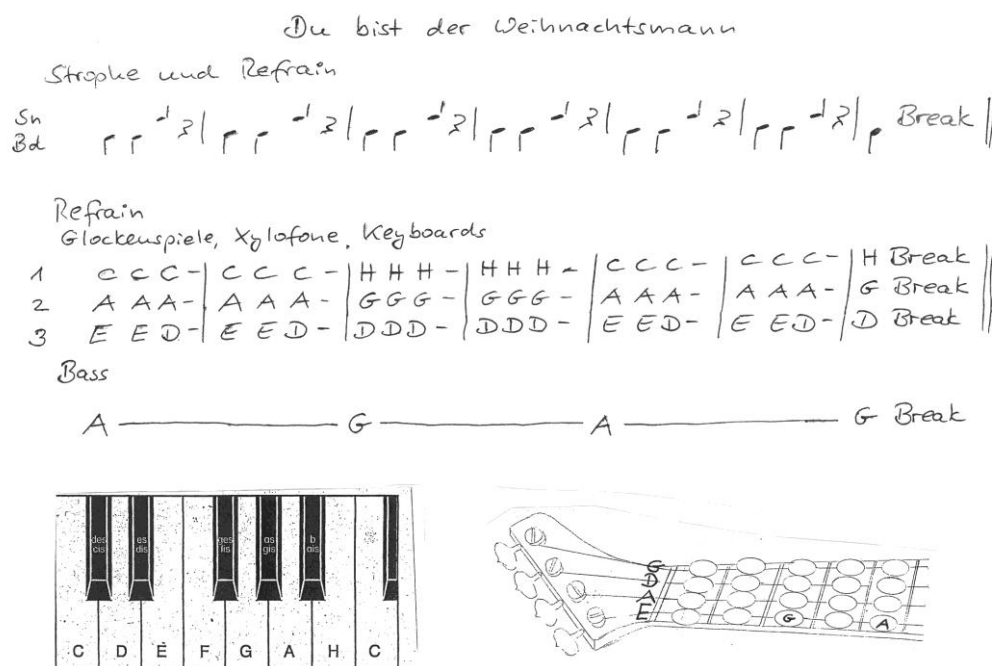 Du bist der Weihnachtsmann
Strophe und Refrain
Sn
Bd
Break
Refrain
Glockenspiele, Xylofone, Keyboards
1 C C C - | C C C - | H H H - | H H H - | C C C - | C C C - | H Break
2 A A A - | A A A - | G G G - | G G G - | A A A - | A A A - | G Break
3 E E D - | E E D - | D D D - | D D D - | E E D - | E E D - | D Break
Bass
A — G — A — G Break
des es ges as b
cis dis fis gis ais
C D E F G A H C
G
D
A
E G A